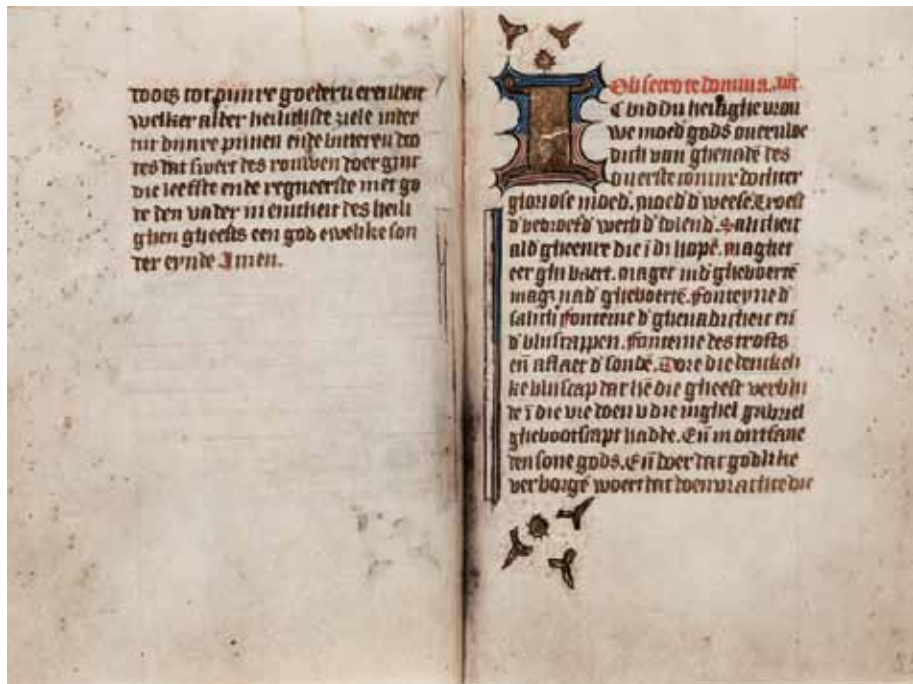 doots tot dijnre goedertierenheit
welker alder heilichste ziele inder
tijt dijnre pinen ende bitteren doo
des dat swert des rouwen doer ginc
die leefste ende regneerste met go
de den vader in enicheit des heili
ghen gheests een god ewelike son
der eynde Amen.
Obsecro te domina.
I C bid du heilighe vrou
we moed gods ouervloe
dich van ghenadē des
ouerste conīnx dochter
gloriose moed. moed d weese. Troest
d bedroefd wech d dolend. Salicheit
ald gheenre die ī di hopē. maghet
eer ghi baert. mager ind gheboertē
mag nad gheboertē. fonteyne d
salich fonteine d ghenadicheit eñ
d bliscappen. fonteine des trosts
eñ aflaet d sondē. Dore die
ke bliscap dat hē die gheest verbli
de ī die vre doen v die inghel gabriel
ghebootscapt hadde. Eñ in ontfane
den sone gods. Eñ doer dat godlike
verborgē woert dat doen wrachte die